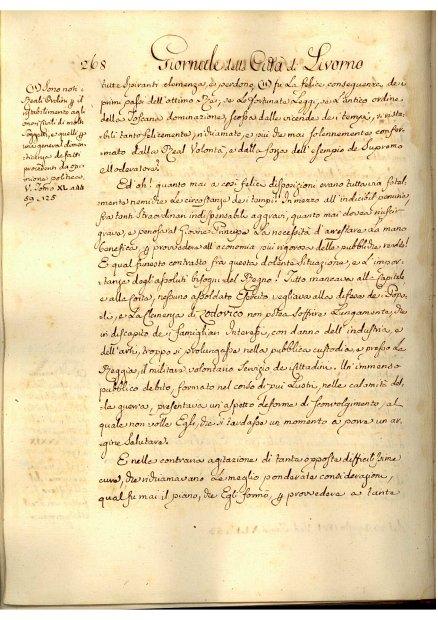 268
Giornale della Città di Livorno
(11) Sono noti i
Reali Ordini p il
ristabilimento agli
onori, posti di molti
Soggetti, e quelli p
una general dimen-
ticanza de fatti
procedenti da opi-
nione politica.
V. Tomo XL a 44
59. e 125
tutte spiranti clemenza, e perdono (11) fu la felice conseguenza de i
primi passi dell'ottimo Re; se le fortunate Leggi, se l'antico ordine
della Toscana dominazione, scossa dalle vicende de i tempi, si ristabi-
bilì tanto felicemente richiamato, e più che mai solennemente confer-
mato dalla Real Volontà, e dalla forza dell'esempio de Supremo
Moderatore?
Ed oh! quanto mai a così felice disposizioni erano tuttavia fatal-
mente nemiche le circostanze de i tempi! In mezzo all'indicibil penuria,
fra tanti straordinari indispensabili aggravi, quanto mai doveva riuscir
grave, e penosa al Giovine Principe la necessità d'arrestare la mano
benefica, p provvedere all'economia più rigorosa delle pubbliche rendite!
E qual funesto contrasto fra questa dolente situazione, e l'impor-
tanza degli assoluti bisogni del Regno! Tutto mancava alla Capitale
e alla Corte, nessuno assoldato Esercito vegliava alla difesa dei Popo-
li, e la Clemenza di Lodovico non potea soffrire lungamente, che
in discapito dei famigliari Interessi, con danno dell'industria, e
dell'arti, troppo si prolungasse nella pubblica custodia, e presso la
Reggia, il militare volontario servizio de Cittadini. Un'immenso
pubblico debito, formato nel corso di più Lustri, nelle calamità del-
la guerra, presentava un'aspetto deforme di sconvolgimento, al
quale non volle Egli, che si tardasse un momento a porre un ar-
gine salutare.
E nella contraria agitazione di tante opposte difficilissime
cure, che richiamavano le meglio ponderate considerazioni,
qual fu mai il piano, che Egli formò, p provvedere a tante